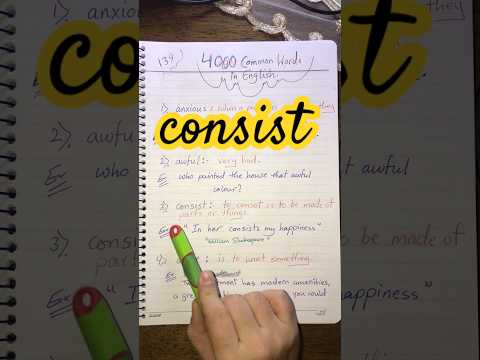 139
4000 Common Words
In English
1) anxious
they
consist
2) awful:- very bad.
Ex who painted the house that awful
colour?
3) consist: to consist is to be made of
parts or things.
Ex "In her consists my happiness"
"William Shakespeare"
: is to want something.
Ex
has modern amenities,
you could